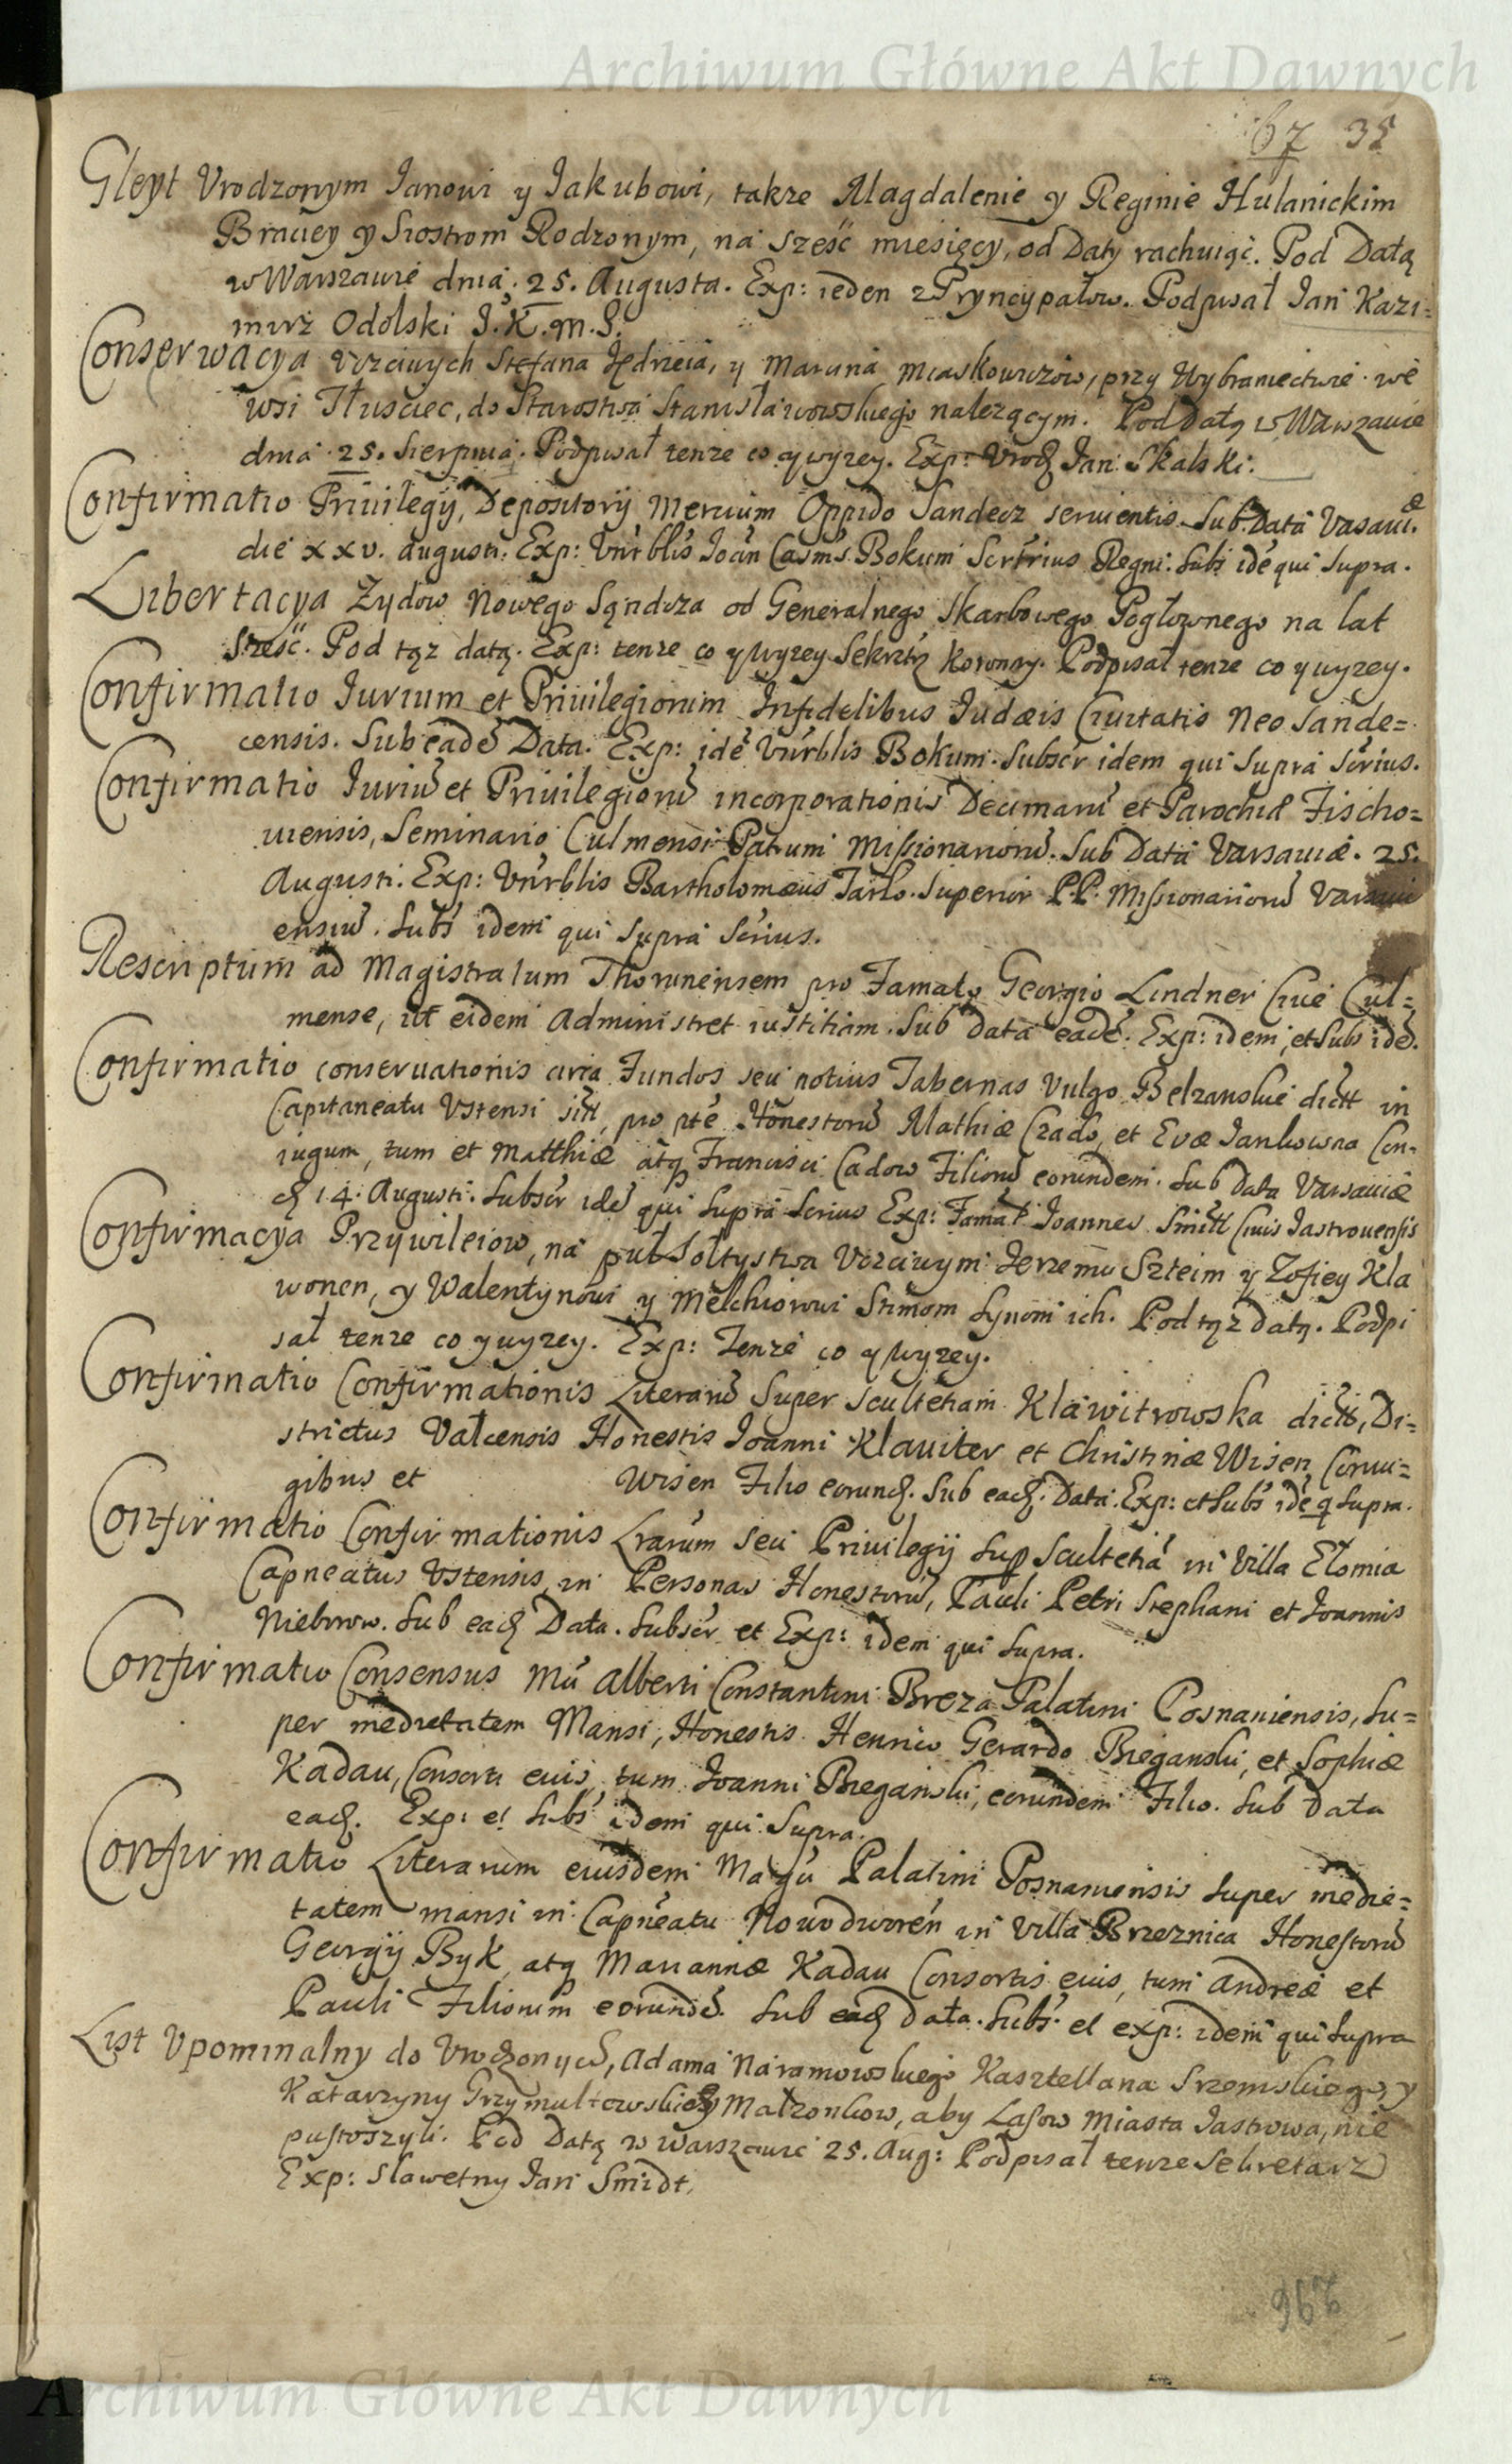 Archiwum Główne Akt Dawnych
67 35
Gleyt Vrodzonym Janowi y Jakubowi, takze Magdalenie y Reginie Hulanickim
Braciey y Siostrom Rodzonym, na sześć miesięcy, od Daty rachuiąc. Pod Datą
w Warszawie dnia. 25. Augusta. Exp: ieden z Pryncypałow. Podpisał Jan Kazi=
mirz Odolski J.K.M.S.
Conserwacya Vczciwych Stefana Jędrzeia, y Marcina Miaskowiczow, przy Wybraniectwie we
wsi Tłusciec, do Starostwa Stanisławowskiego nalezącym. Pod Datą w Warszawie
dnia 25. Sierpnia. Podpisał tenze co y wyzey. Exp: Vrodz Jan Skalski.
Confirmatio Priuilegij, Depositorij Mercium Oppido Sandecz seruientis. Sub Data Varsauiæ
die xxv. augusti. Exp: Vnrblis Joan Casms Bokum Scrtrius Regni. Subs idé qui supra.
Libertacya Zydow Nowego Sąndcza od Generalnego Skarbowego Pogłownego na lat
sześć. Pod tąz datą. Exp: tenze co y wyzey Sekrtz Koronny. Podpisał tenze co y wyzey.
Confirmatio Jurium et Priuilegiorum Infidelibus Judæis Ciuitatis Neo Sande=
censis. Sub eadé Data. Exp: idé Vnrblis Bokum. Subscr idem qui supra Scrius.
Confirmatio Juriũ et Priuilegiorũ incorporationis Decimarũ et Parochiæ Fischo=
uiensis, Seminario Culmensi Patrum Missionariorũ. Sub Data Varsauiæ. 25.
Augusti. Exp: Vnrblis Bartholomæus Tarlo. Superior P.P. Missionariorũ Varsaui
ensiũ. Subs idem qui supra Scrius.
Rescriptum ad Magistratum Thorunensem pro Famato Georgio Lindner Ciue Cul=
mense, ut eidem Administret iustitiam. Sub data eadé. Exp: idem, et Subs idé.
Confirmatio conseruationis circa Fundos seu potius Tabernas vulgo Belzanskie dictt in
Capitaneatu Vstensi sitt, pro pte Honestorũ Mathiæ Czado, et Evæ Jankowna Con=
iugum, tum et Matthiæ atq Francisci Cadow Filiorũ eorundem. Sub Data Varsauiæ
d 14. Augusti. Subscr idé qui supra Scrius Exp: Famat Joannes Smitt Ciuis Jastrouensis
Confirmacya Przywileiow, na puł Sołtystwa Vczciwym Jerzemu Szteim y Zofiey Kla
wonen, y Walentynowi y Melchiorowi Stimom Synom ich. Pod tąz datą. Podpi
sał tenze co y wyzey. Exp: Tenze co y wyzey.
Confirmatio Confirmationis Literarũ super scultetiam Klawitrowska dictt, Di=
strictus Valcensis Honestis Joanni Klawiter et Christinæ Wisen Coniu=
gibus et Wisen Filio eorund. Sub ead. Data. Exp: et Subs idé q supra.
Confirmatio Confirmationis Lrarum seu Priuilegij sup Scultetiá in Villa Elomia
Capneatus Vstensis, in Personas Honestorũ, Pauli Petri Stephani et Joannis
Niebrow. Sub ead Data. Subscr et Exp: idem qui supra.
Confirmatio Consensus Mci Alberti Constantini Breza Palatini Posnaniensis, su=
per medietatem Mansi, Honestis Henrico Gerardo Breganski, et Sophiæ
Kadau, Consorti eius, tum Joanni Breganski, eorundem Filio. Sub Data
ead. Exp: et Subs idem qui supra.
Confirmatio Literarum eiusdem Magci Palatini Posnaniensis super medie=
tatem mansi in Capneatu Nowodworen in Villa Brzeznica Honestorũ
Georgij Byk, atq Mariannæ Kadau Consortis eius, tum Andreæ et
Pauli Filiorum eorundé. Sub ead data. Subs et exp: idem qui supra
List Vpominalny do Vrodzonych, Adama Naramowskiego Kasztellana Srzemskiego, y
Katarzyny Grzymułtowskiey Małzonkow, aby Lasow Miasta Jastrowa, nie
pustoszyli. Pod Datą w Warszawie 25. Aug: Podpisał tenze Sekretarz
Exp: Sławetny Jan Smidt.
296
Archiwum Główne Akt Dawnych